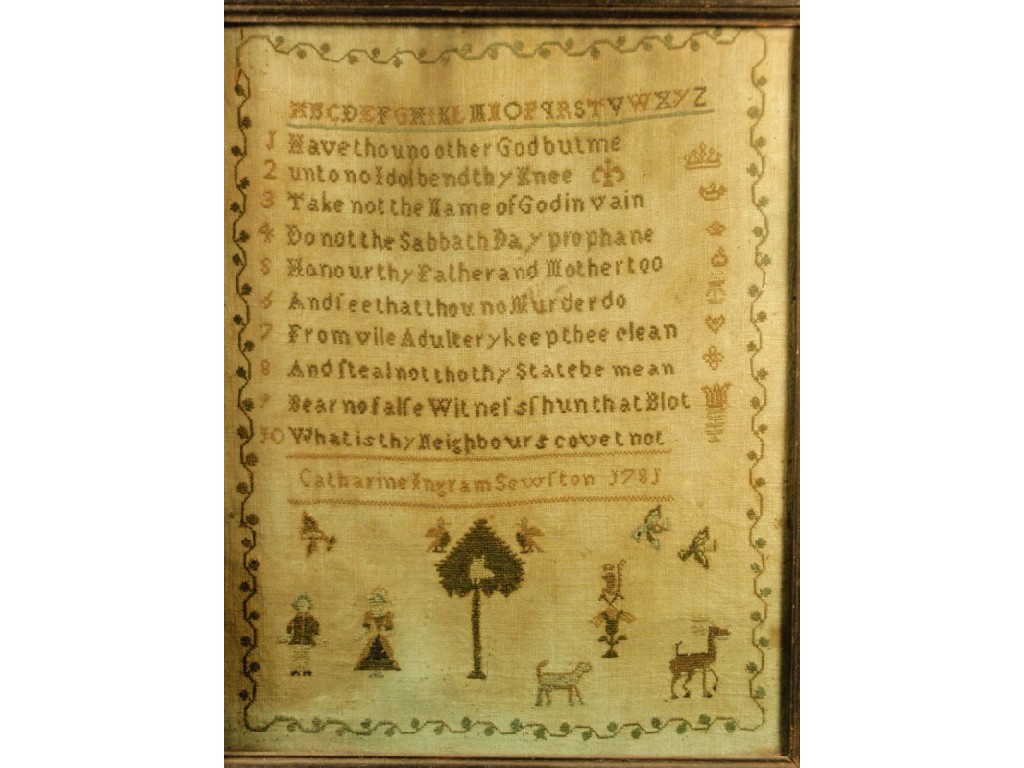 ABCDEFGHIKLMNOPQRSTVWXYZ
1 Have thou no other God but me
2 unto no Idol bend thy Knee
3 Take not the Name of God in vain
4 Do not the Sabbath Day prophane
5 Honour thy Father and Mother too
6 And ſee that thou no Murder do
7 From vile Adultery keep thee clean
8 And ſteal not tho thy State be mean
9 Bear no falſe Witneſs ſhun that Blot
10 What is thy Neighbours covet not
Catharine Ingram Sewſton 1781